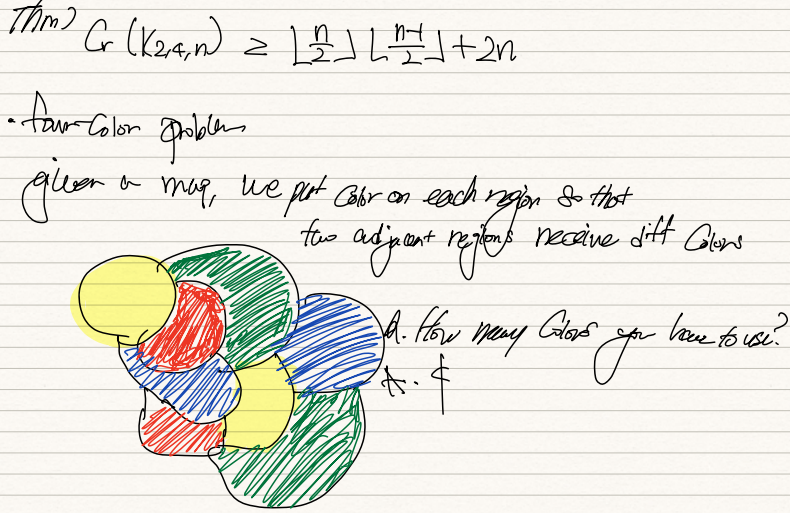 Thm)
Cr (K2,4,n) ≥ ⌊n/2⌋ ⌊n-1/2⌋ + 2n
• four-color problem
given a map, we put color on each region so that
two adjacent regions receive diff colors
Q. How many colors you have to use?
A. 4